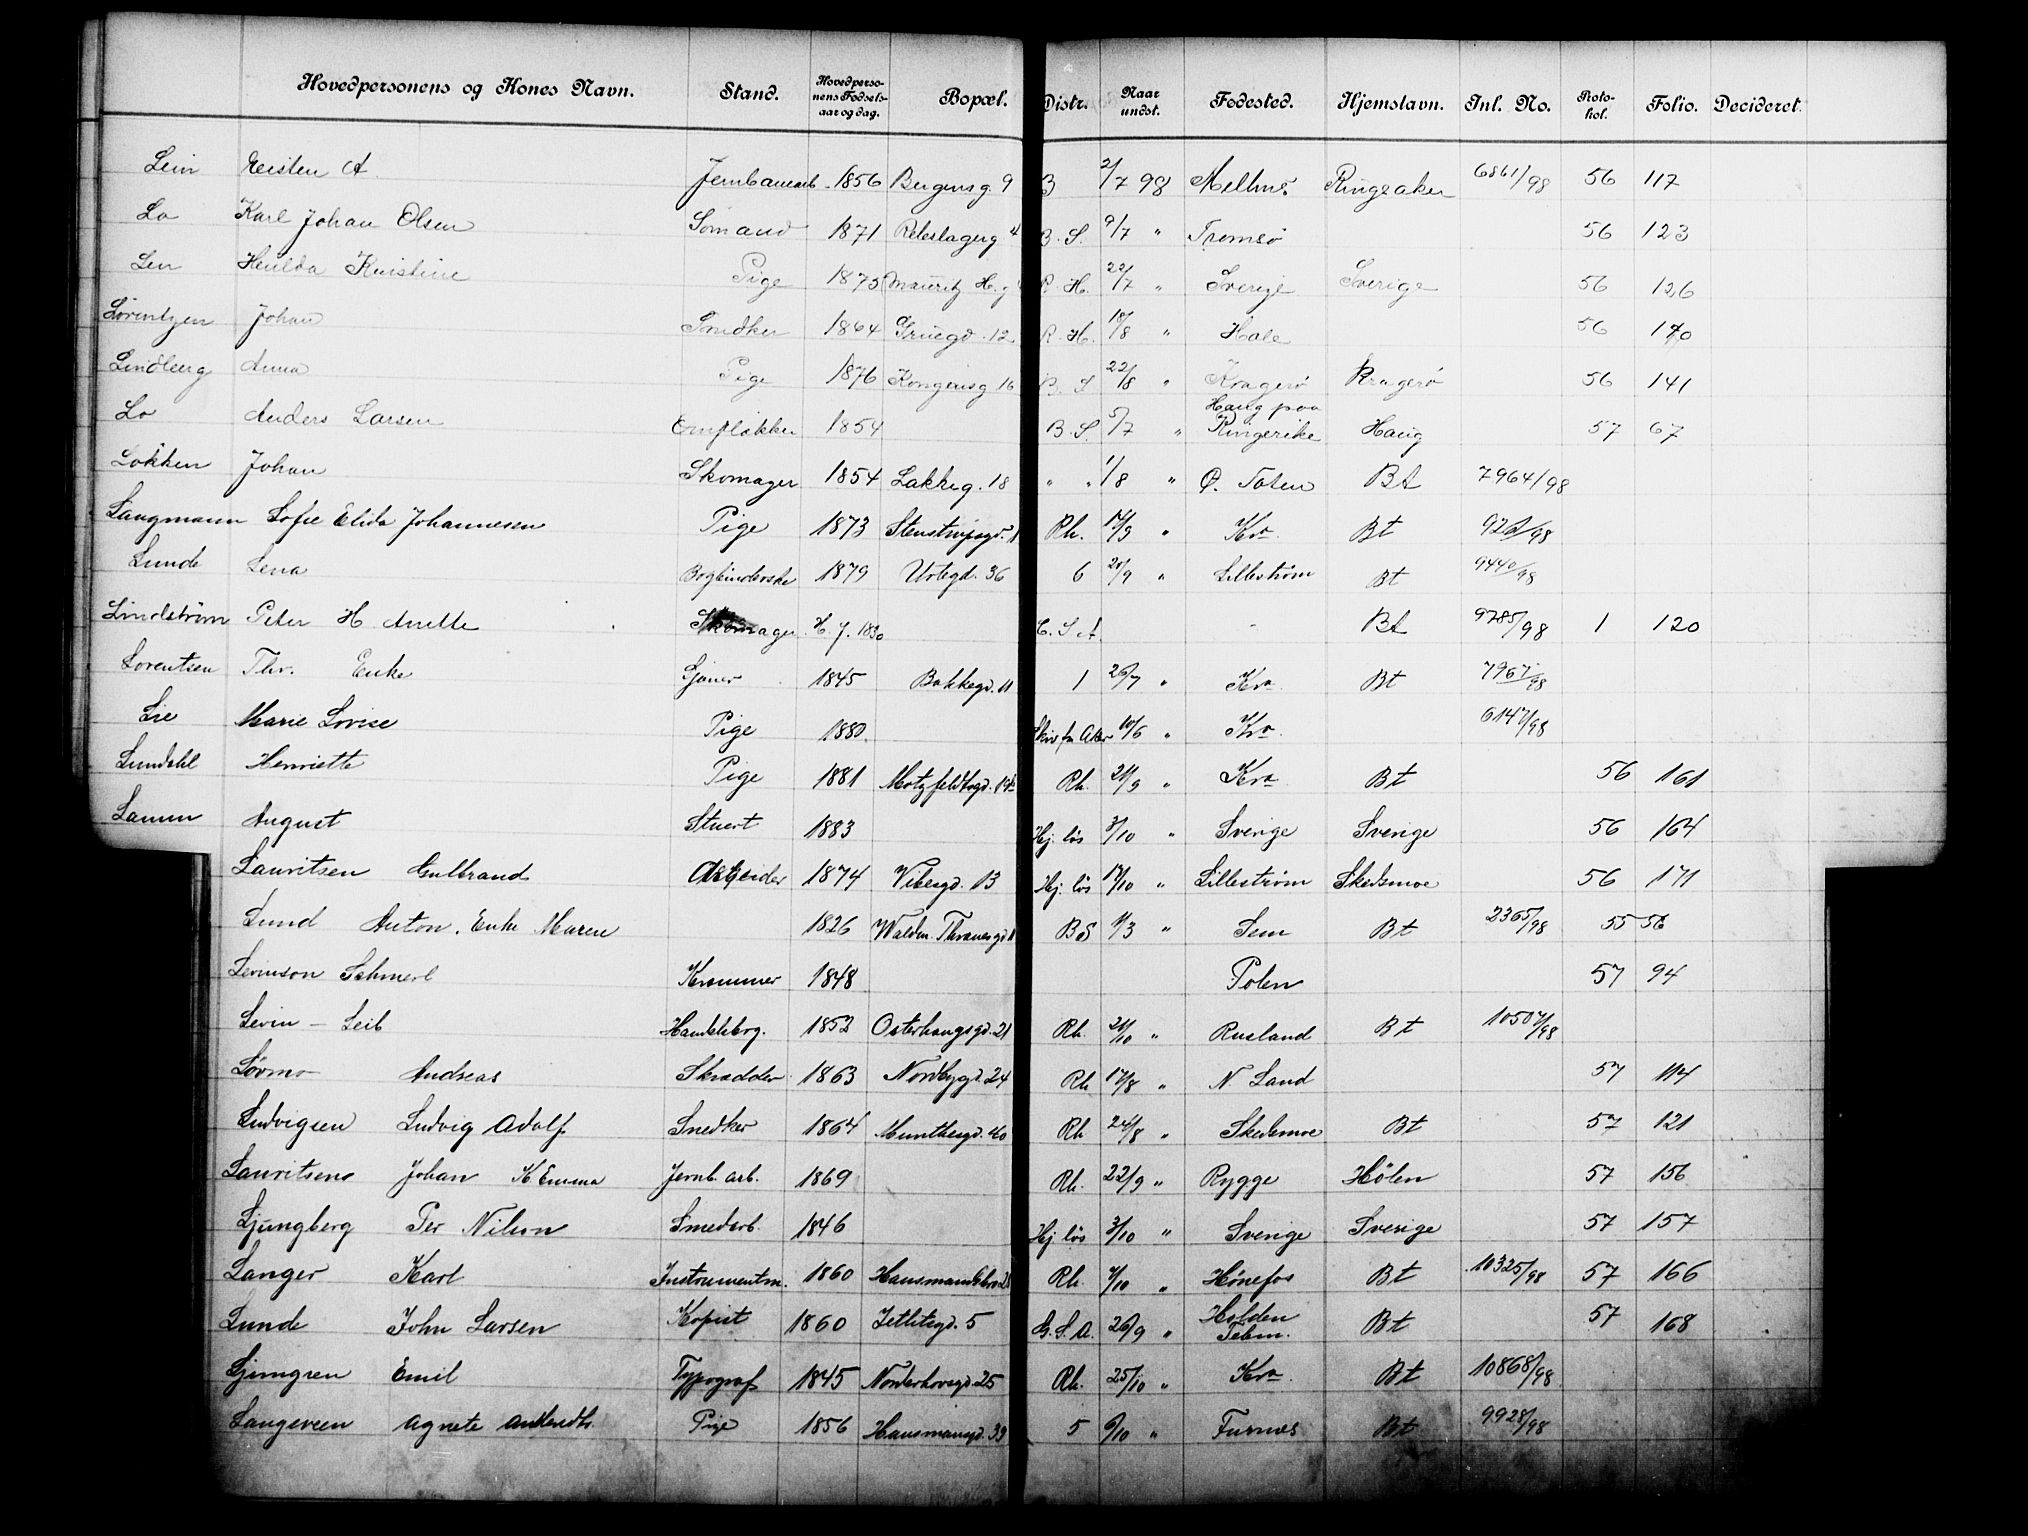 Hovedpersonens og Kones Navn. Stand. Hovedpersonens Fødselsaar og dag. Bopæl. Distr. Naar undst. Fødested. Hjemstavn. Inl. No. Protokol. Folio. Decideret.
Lein Eisten A. Jernbanearb 1856 Bergensg 9 B 2/7 98 Melhus Ringsaker 6861/98 56 117
Lo Karl Johan Olsen Sømand 1871 Rebslagerg 4 B.S. 9/7 " Tromsø 56 123
Len Hulda Kristine Pige 1875 Mauritz H. g R.H. 22/7 " Sverige Sverige 56 126
Lorentzen Johan Snedker 1864 Gruegd. 12 R.H. 18/8 " Hole 56 140
Lindberg Anna Pige 1876 Kongensg 16 B.S 22/8 " Kragerø Kragerø 56 141
Lo Anders Larsen 1854 B.S. 5/7 " Haug paa Ringerike Haug 57 67
Løkken Johan Skomager 1854 Lakkeg. 18 " " 1/8 " Ø. Toten Bt 7964/98
Langmann Sofie Elida Johannesen Pige 1873 Stenstrupsgd. Rh. 14/9 " Kra Bt
Lunde Lena Bogbinderske 1879 Urtegd. 36 6 20/9 " Lillestrøm Bt 9440/98
Lindstrøm Peter H Anette Skomager H. f. 1830 Bt 9785/98 1 120
Lorentsen Thv. Enke 1845 Bakkegd. 11 1 26/7 " Kra Bt 7967/98
Lie Marie Lovise Pige 1880 Skriv fra Aker 10/6 " Kra. 6147/98
Lundahl Henriette Pige 1881 Motzfeldtsgd. 19b Rh. 21/9 " Kra Bt 56 161
Lamm August Stuert 1883 Hj. løs 3/10 " Sverige Sverige 56 164
Lauritsen Gulbrand Arbeider 1874 Vibesgd. 13 Hj. løs 17/10 " Lillestrøm Skedsmoe 56 171
Lund Anton. Enke Maren 1826 Waldm. Thranesgd B S /3 " Sem Bt 2365/98 55 56
Levinson Schmerl Kræmmer 1848 Polen 57 94
Levin – Leib Handelsbrg. 1852 Osterhausgd. 21 Rh. 21/10 " Rusland Bt 10507/98
Løvmo Andreas Skrædder 1863 Nordbygd. 24 Rh 17/8 " N Land 57 114
Ludvigsen Ludvig Adolf Snedker 1864 Munthesgd. 40 Rh 24/8 " Skedsmoe Bt 57 121
Lauritsen Johan K Emma Jernb. arb. 1869 Rh. 22/9 " Rygge Hølen 57 156
Ljungberg Per Nilson Smedarb. 1846 Hj løs 3/10 " Sverige Sverige 57 157
Langer Karl Instrumentm. 1860 Rh. /10 " Hønefos Bt 10325/98 57 166
Lunde John Larsen Kopist 1860 Jetlitsgd. 5 G.S.A. 26/9 " Holden Telem. Bt 57 168
Ljungren Emil Typograf 1845 Norderhovsgd. 25 Rh. 25/10 " Kra. Bt 10868/98
Langeveen Agnete Pige 1856 Hausmansgd. 33 5 6/10 " Furnes Bt 9928/98